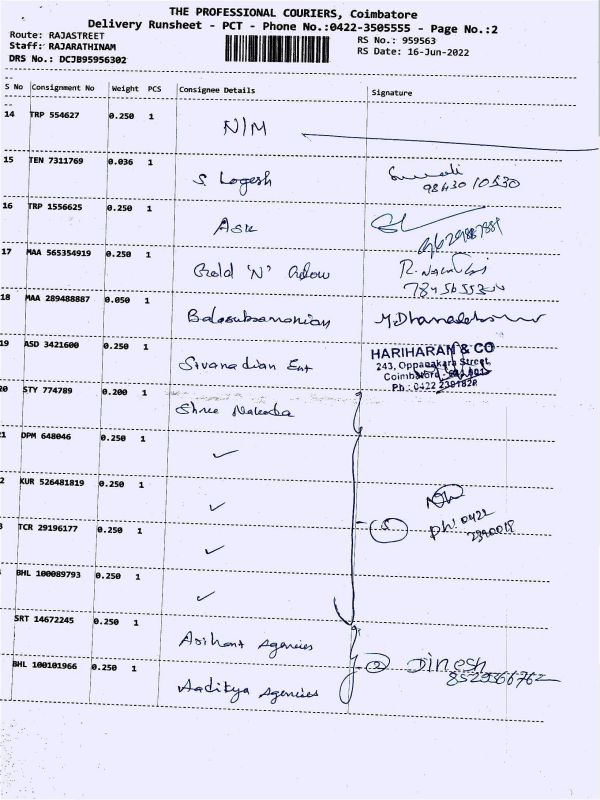 THE PROFESSIONAL COURIERS, Coimbatore
Delivery Runsheet - PCT - Phone No.:0422-3505555 - Page No.:2
Route: RAJASTREET
Staff: RAJARATHINAM
DRS No.: DCJB95956302
RS No.: 959563
RS Date: 16-Jun-2022
S No Consignment No Weight PCS Consignee Details Signature
14 TRP 554627 0.250 1 N/M
15 TEN 7311769 0.036 1 S. Logesh
98430 10530
16 TRP 1556625 0.250 1 Ask
17 MAA 565354919 0.250 1 Gold 'N'
18 MAA 289488887 0.050 1 Balasubramanian
19 ASD 3421600 0.250 1 Sivanadian Ent
HARIHARAN & CO
243, Oppanakara Street,
Coimbatore - 641 001
Ph : 0422 2391828
20 STY 774789 0.200 1 Shree
1 DPM 648046 0.250 1 ✓
2 KUR 526481819 0.250 1 ✓
5
Ph: 0422
3 TCR 29196177 0.250 1 ✓
BHL 100089793 0.250 1 ✓
SRT 14672245 0.250 1 Arihant Agencies
BHL 100101966 0.250 1 Aaditya Agencies
2 Dinesh